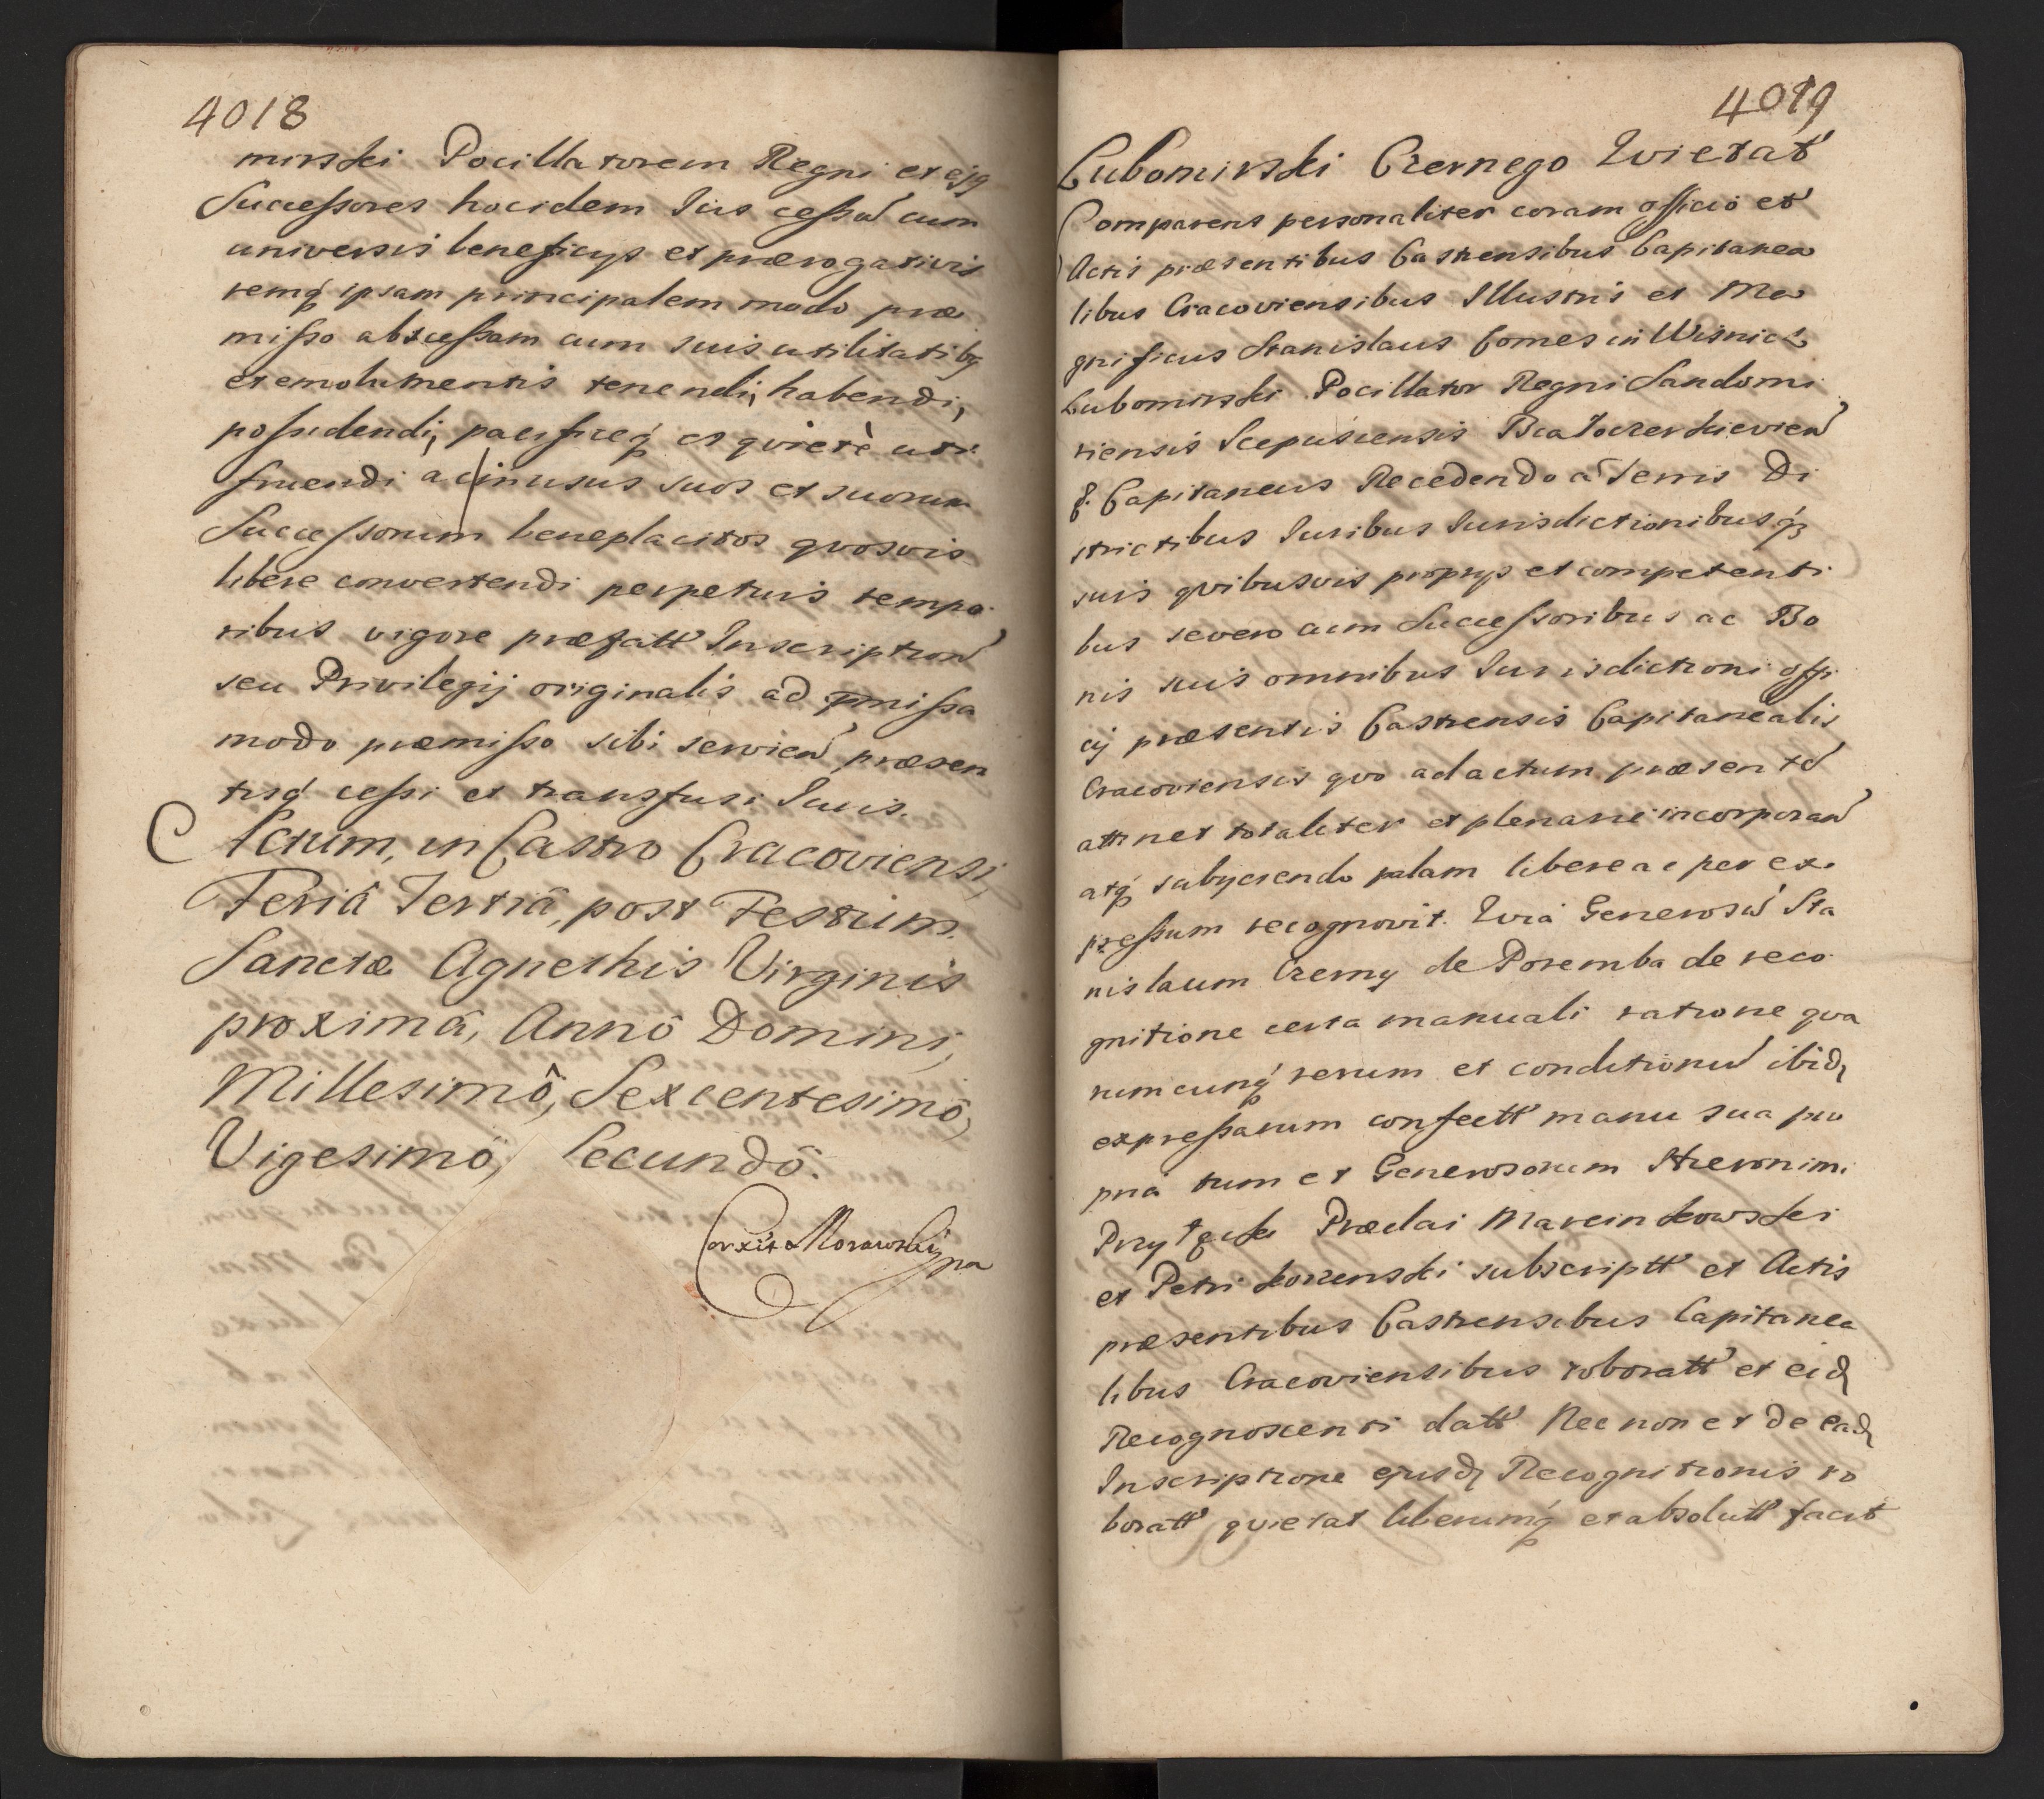 4018
mirski Pocillatorem Regni et ejq
Successores hocidem Ius cessu cum
universis beneficys et prærogativis
remq́ ipsam principalem modo præ
misso abscessam cum suis utilitatibq
et emolumentis tenendi, habendi,
possidendi, pacificeq́ et qvietè uti
fruendi ac in usus suos et suorum
Successorum beneplacitos qvosvis
libere convertendi perpetuis tempo
ribus vigore præfatt Inscription
seu Privilegij originalis ad pmissa
modo præmisso sibi servien præsen
tisq́ cessi et transfusi Iuris.
Actum, in Castro Cracoviensi,
Feriâ Tertiâ, post Festum
Sanctæ Agnethis Virginis
proximâ, Annô Domini,
Millesimô, Sexcentesimô,
Vigesimô, Secundô.
Corxit Morawski
mp
4019
Lubomirski Czernego Qvietat
Comparens personaliter coram officio et
Actis præsentibus Castrensibus Capitanea
libus Cracoviensibus Illustris et Ma
gnificus Stanislaus Comes in Wisnicz
Lubomirski Pocillator Regni Sandomi
riensis Scepusiensis Biatocerkievien
&. Capitaneus Recedendo a Terris Di
strictibus Iuribus Iurisdictionibusq́
suis qvibusvis proprys et competenti
bus severo cum Successoribus ac Bo
nis suis omnibus Iurisdictioni offi
cij præsentis Castrensis Capitanealis
Cracoviensis qvo ad actum præsente
attinet totaliter et plenarie incorporan
atq́ subyciendo palam libere ac per ex
pressum recognovit. Qvia Generosu Sta
nislaum Czerny de Poremba de reco
gnitione certa manuali ratione qva
rumcunq́ rerum et conditionu ibid
expressarum confectt manu sua pro
pria tum et Generosorum Hieronimi
Przyłęcki Præclai Marcinkowski
et Petri Lozenski subscriptt et Actis
præsentibus Castrensibus Capitanea
libus Cracoviensibus roboratt et eid
Recognoscenti datt Nec non et de ead
Inscriptione ejusd Recognitionis ro
boratt qvietat liberumq́ et absolutt facit